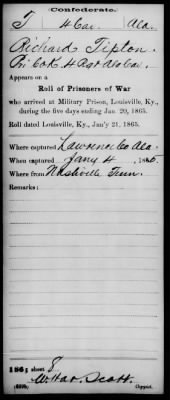 Confederate.
T 4 Cav. Ala.
Richard Tipton.
Pri Co K 4 Regt Ala Cav.
Appears on a
Roll of Prisoners of War
who arrived at Military Prison, Louisville, Ky.,
during the five days ending Jan. 20, 1865.
Roll dated Louisville, Ky., Jan'y 21, 1865.
Where captured Lawrence Co Ala.
When captured Jany 4, 1865.
Where from Nashville Tenn.
Remarks:
1865 sheet 8
Scott.
Copyist.